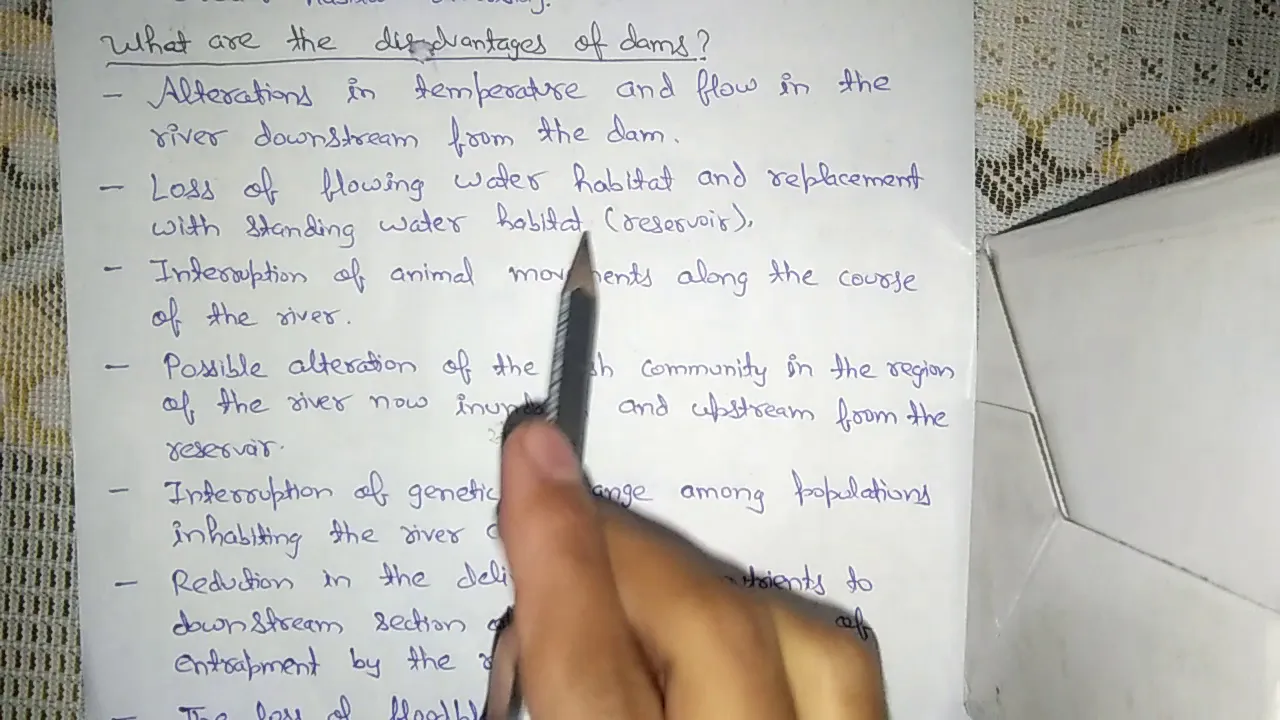 What are the disadvantages of dams?
- Alterations in temperature and flow in the
river downstream from the dam.
- Loss of flowing water habitat and replacement
with standing water habitat (reservoir).
- Interruption of animal along the course
of the river.
- Possible alteration of the community in the region
of the river now and upstream from the
reservoir.
- Interruption of genetic among populations
inhabiting the river
- Reduction in the to
downstream section of
entrapment by the
- The loss of